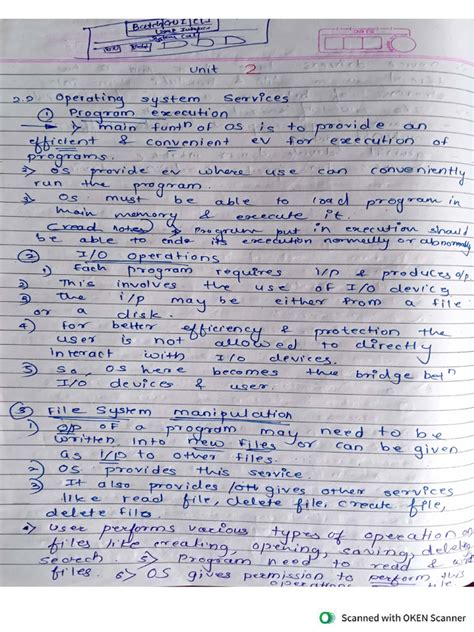 Batch GUI CLI
User Interface
System Call
Unit 2
2.2 Operating system Services
① Program execution
1> main funtn of OS is to provide an
efficient & convenient ev for execution of
programs.
2> OS provide ev where use can conveniently
run the program.
3> OS must be able to load program in
main memory & execute it.
(read notes) > Program put in execution should
be able to ends its execution normally or abnormally
② I/O Operations
1) Each program requires i/p & produces o/p
2) This involves the use of I/O device
3) the i/p may be either from a file
or a disk.
4) For better efficiency & protection the
user is not allowed to directly
interact with I/O devices.
5) So, OS here becomes the bridge betn
I/O devices & user.
③ File System manipulation
1) O/p of a program may need to be
written into new files or can be given
as i/p to other files.
2) OS provides this service.
3) It also provides gives other services
like read file, delete file, create file,
delete file
4) user performs various types of operation on
files like creating, opening, saving, delete
search. 5> Program need to read &
files. 6> OS gives permission to perform this
operations
Scanned with OKEN Scanner